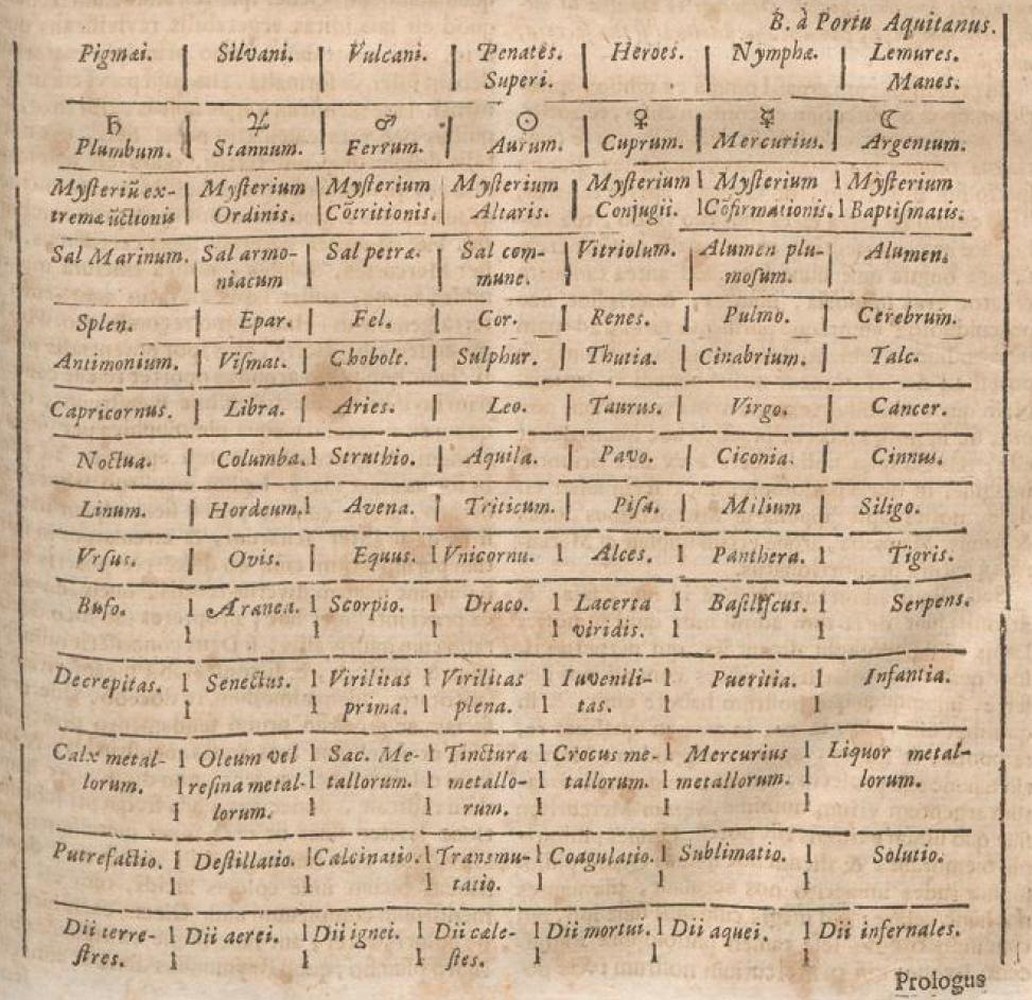 B. à Portu Aquitanus.
Pigmæi. | Silvani. | Vulcani. | Penates. | Heroes. | Nymphæ. | Lemures.
Superi. Manes.
♄ ♃ ♂ ☉ ♀ ☿ ☾
Plumbum. | Stannum. | Ferrum. | Aurum. | Cuprum. | Mercurius. | Argentum.
Myſteriũ ex- | Myſterium | Myſterium | Myſterium | Myſterium | Myſterium | Myſterium
tremæ ũctionis | Ordinis. | Cõtritionis. | Altaris. | Conjugii. | Cõfirmationis. | Baptiſmatis.
Sal Marinum. | Sal armo- | Sal petræ. | Sal com- | Vitriolum. | Alumen plu- | Alumen.
niacum mune. moſum.
Splen. | Epar. | Fel. | Cor. | Renes. | Pulmo. | Cerebrum.
Antimonium. | Viſmat. | Chobolt. | Sulphur. | Thutia. | Cinabrium. | Talc.
Capricornus. | Libra. | Aries. | Leo. | Taurus. | Virgo. | Cancer.
Noctua. | Columba. | Struthio. | Aquila. | Pavo. | Ciconia. | Cinnus.
Linum. | Hordeum. | Avena. | Triticum. | Piſa. | Milium | Siligo.
Vrſus. | Ovis. | Equus. | Vnicornu. | Alces. | Panthera. | Tigris.
Bufo. | Aranea. | Scorpio. | Draco. | Lacerta | Baſiliſcus. | Serpens.
viridis.
Decrepitas. | Senectus. | Virilitas | Virilitas | Iuvenili- | Pueritia. | Infantia.
prima. | plena. | tas.
Calx metal- | Oleum vel | Sac. Me- | Tinctura | Crocus me- | Mercurius | Liquor metal-
lorum. | reſina metal- | tallorum. | metallo- | tallorum. | metallorum. | lorum.
lorum. rum.
Putrefactio. | Deſtillatio. | Calcinatio. | Transmu- | Coagulatio. | Sublimatio. | Solutio.
tatio.
Dii terre- | Dii aerei. | Dii ignei. | Dii cæle- | Dii mortui. | Dii aquei. | Dii infernales.
ſtres. ſtes.
Prologus